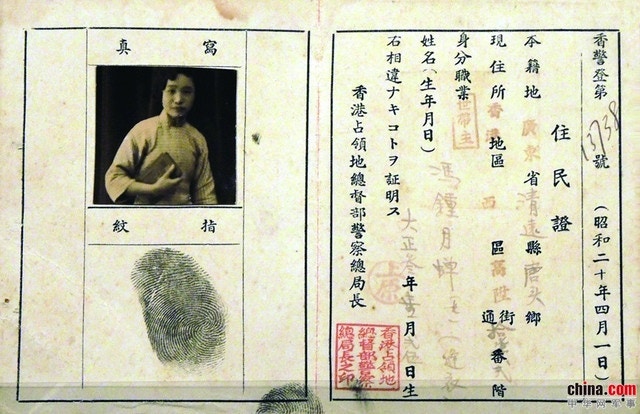 香警登第13738號(昭和二十年四月一日)
住民證
本籍地 廣東省清遠縣 鄉
現住所 香港地區 西區 街通 番 階
身分職業 世帶主
姓名(生年月日) 馮鍾月蟬
大正 年 月 日生
右相違ナキコトヲ証明ス
香港占領地總督部警察總局長
香港占領地
總督部警察
總局長之印
寫真
指紋
china.com
中华网军事